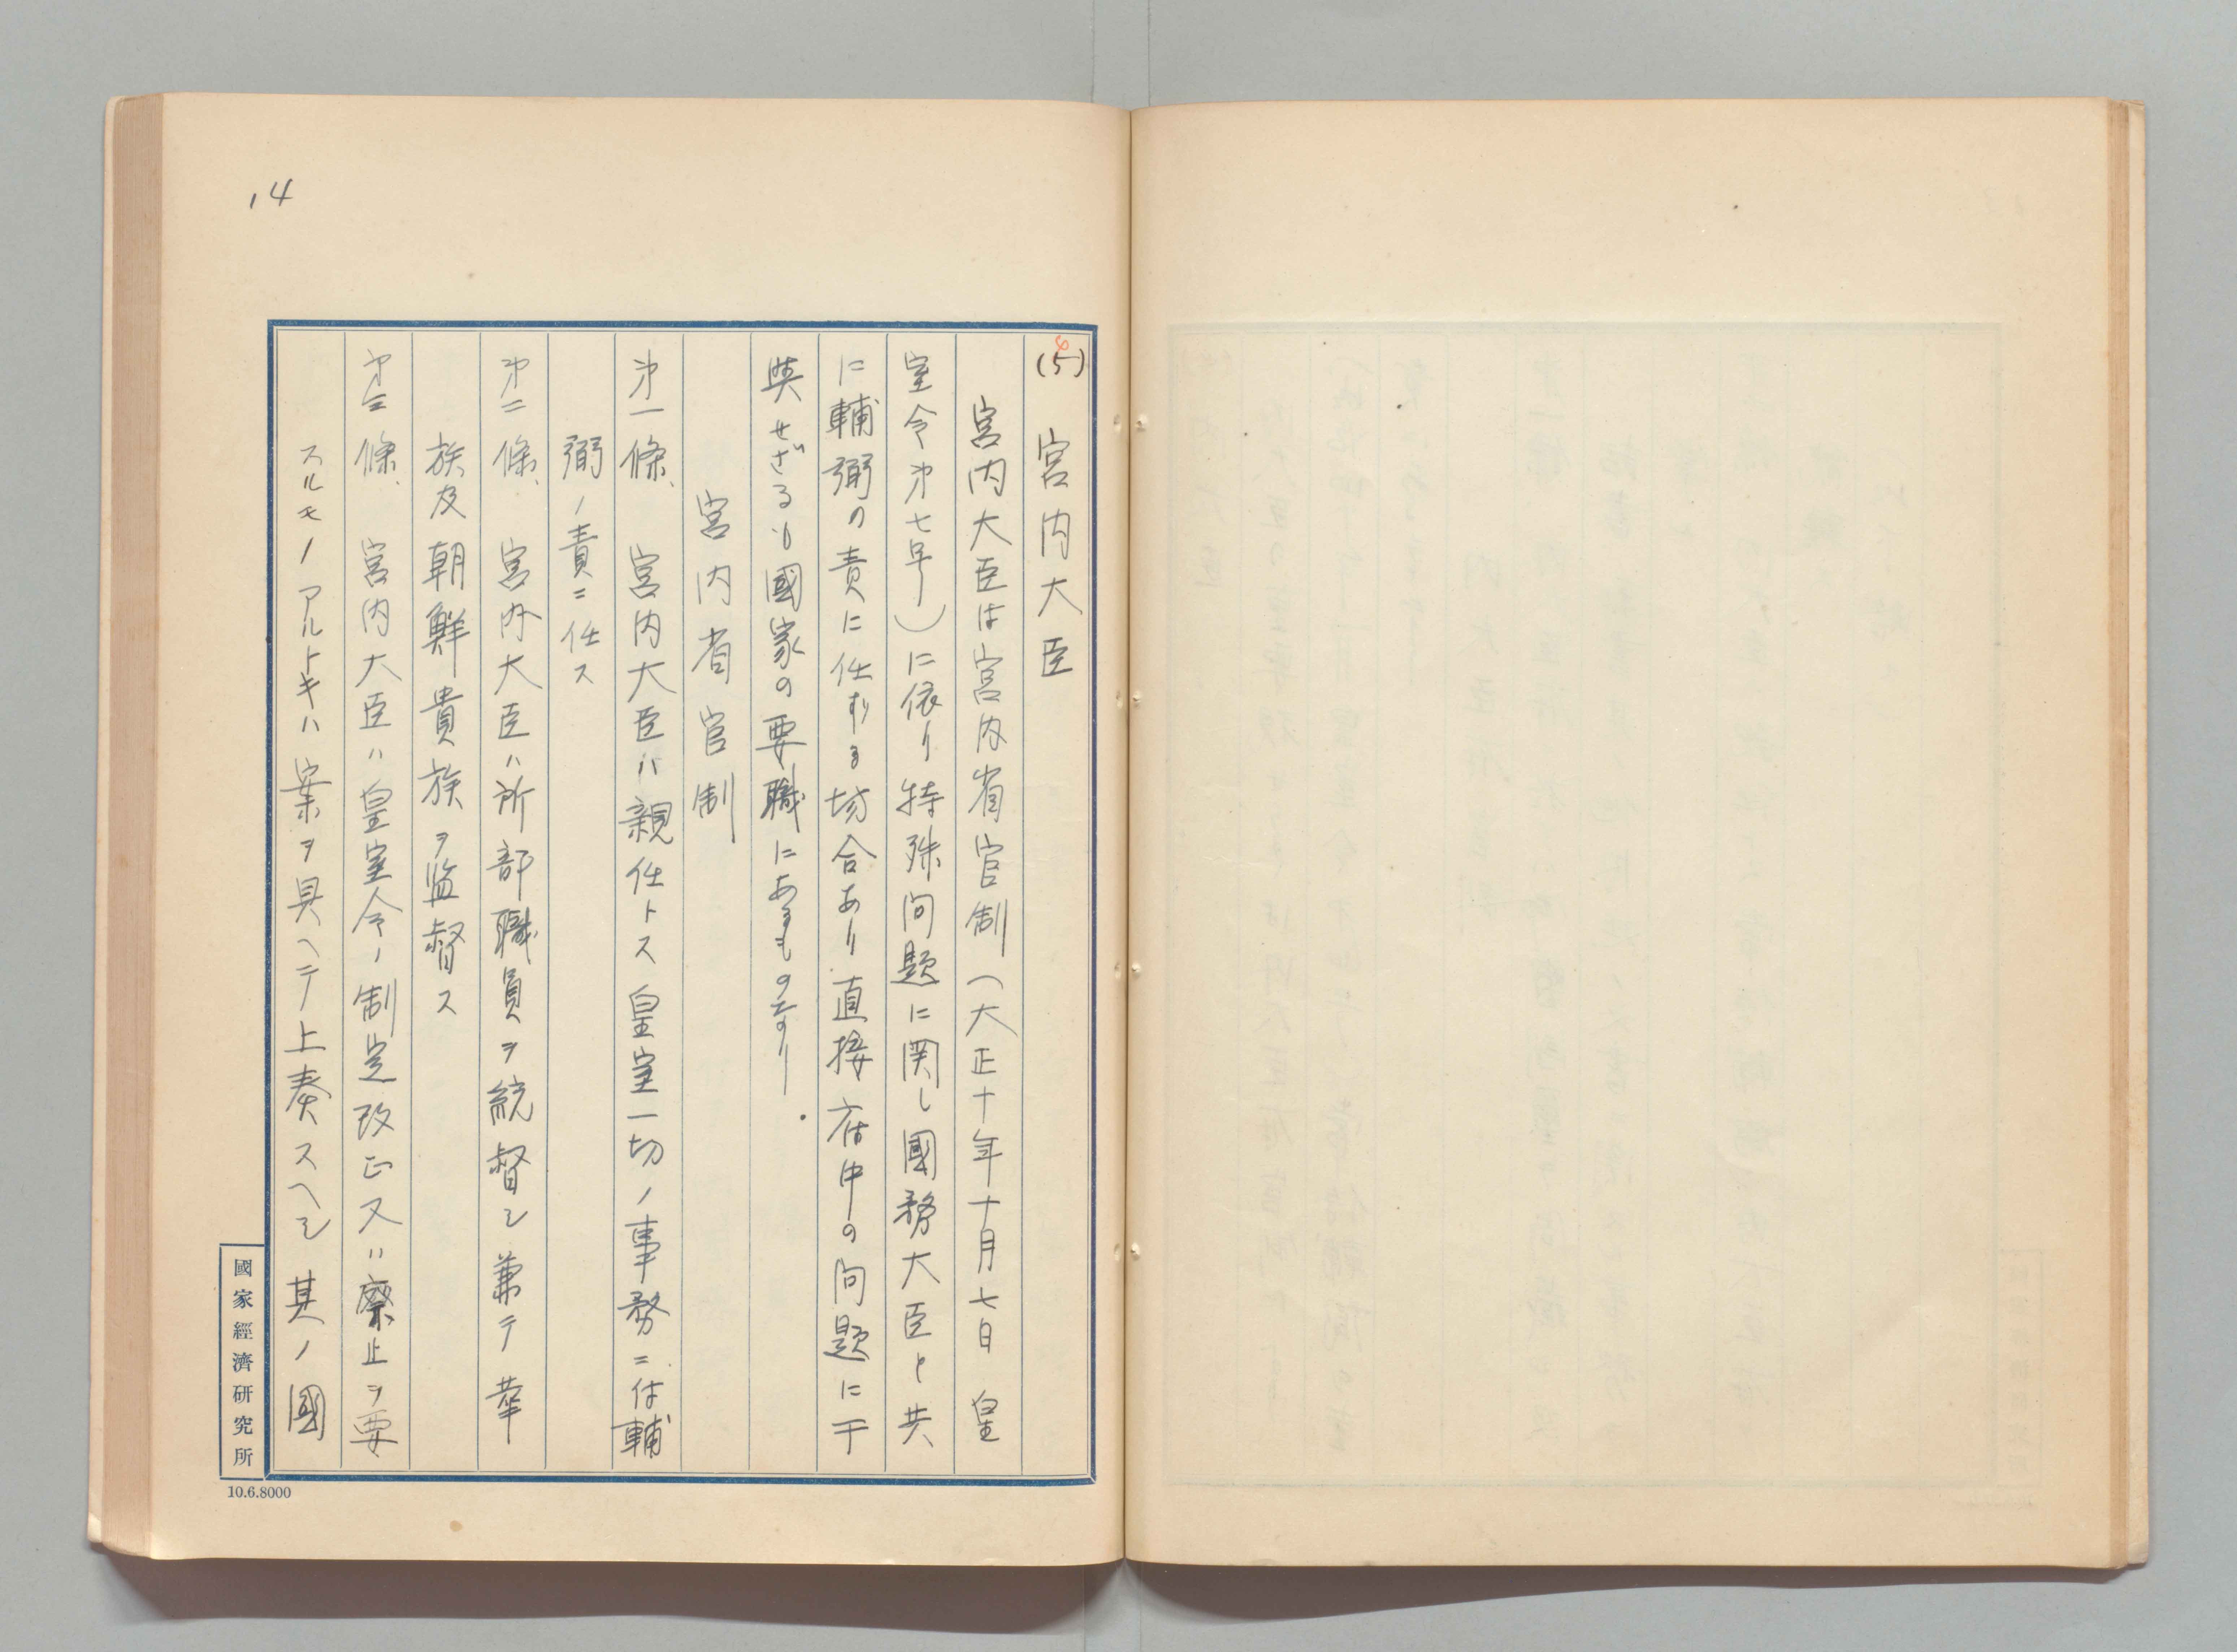 14
(5) 宮内大臣
宮内大臣は宮内省官制(大正十年十月七日 皇
室令第七号)に依り特殊问題に関し國務大臣と共
に輔弼の責に任ずる場合あり直接府中の问題に干
與せざるも國家の要職にあるものなり.
宮内省官制
第一條、 宮内大臣ハ親任トス皇室一切ノ事務ニ付輔
弼ノ責ニ任ス
第二條、 宮内大臣ハ所部職員ヲ統督シ兼テ華
族及朝鮮貴族ヲ監督ス
第三條、 宮内大臣ハ皇室令ノ制定改正又ハ廢止ヲ要
スルモノアルトキハ案ヲ具ヘテ上奏スヘシ其ノ國
國家經濟研究所
10.6.8000